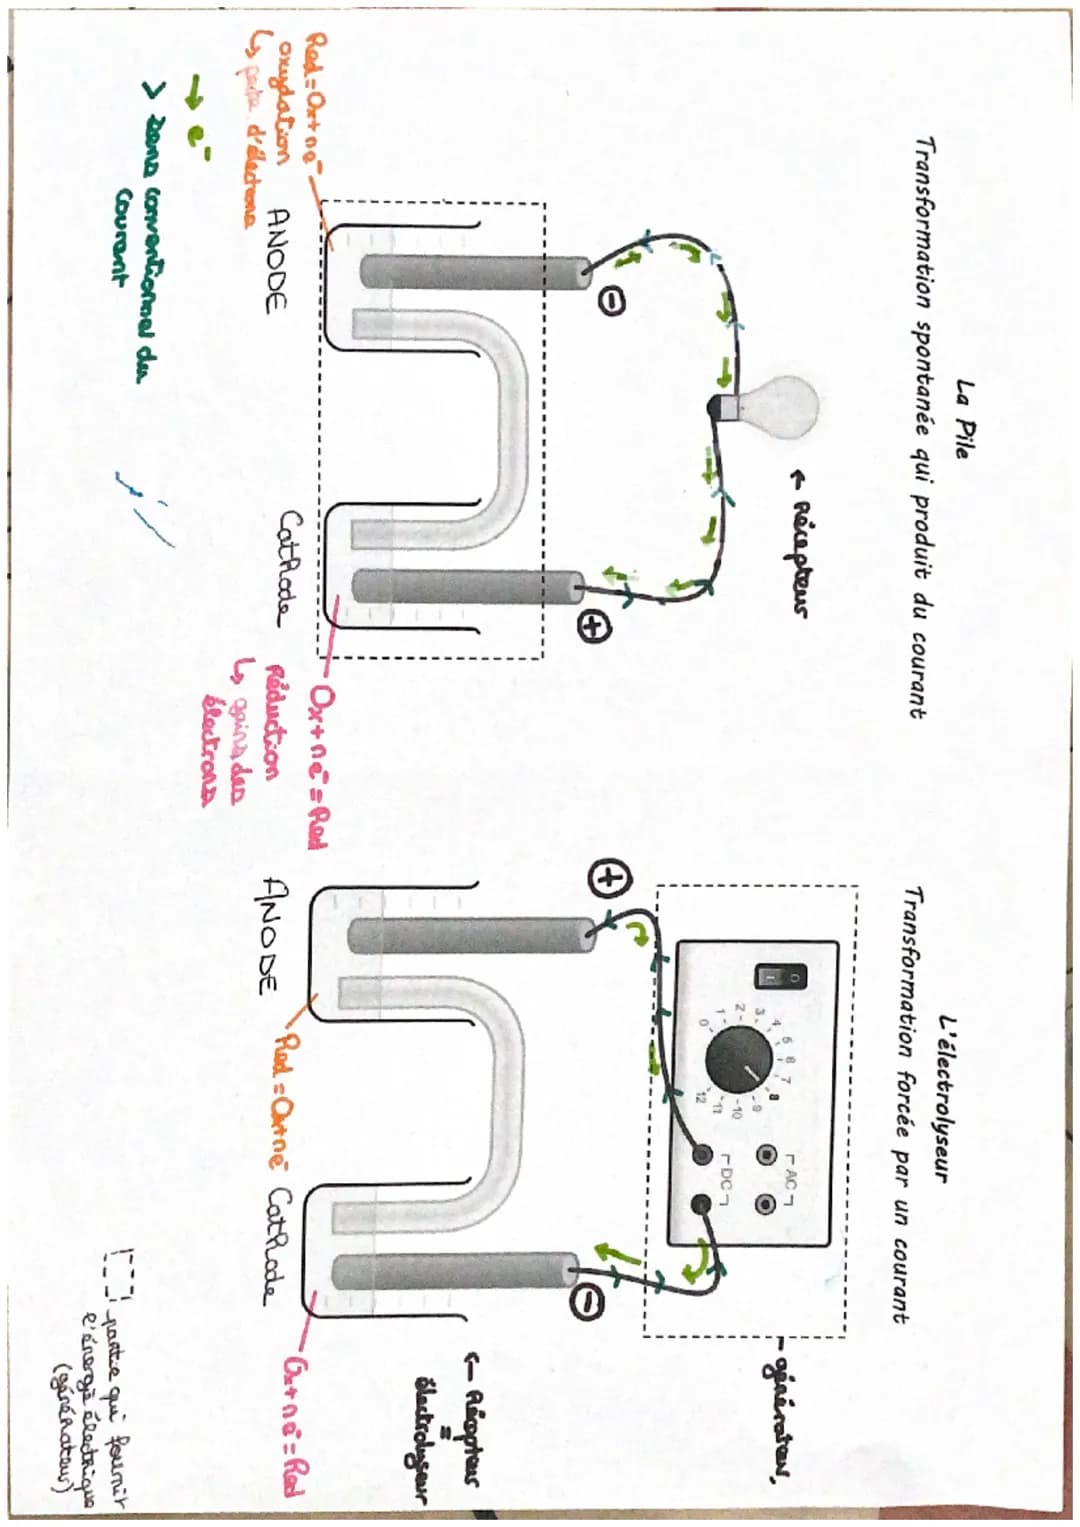 La Pile
Transformation spontanée qui produit du courant
← Récepteur
⊖
⊕
Red = Ox + ne⁻
oxydation
↳ perte d'électrons
ANODE
Cathode
Ox + ne⁻ = Red
Réduction
↳ gains des
électrons
→ e⁻
> sens conventionnel du
courant
L'électrolyseur
Transformation forcée par un courant
générateur
0
1
2
3
4
5
6
7
8
9
10
11
12
AC
DC
⊕
⊖
← Récepteur
=
électrolyseur
ANODE
Red = Ox + ne⁻
Cathode
Ox + ne⁻ = Red
partie qui fournit
l'énergie électrique
(générateur)